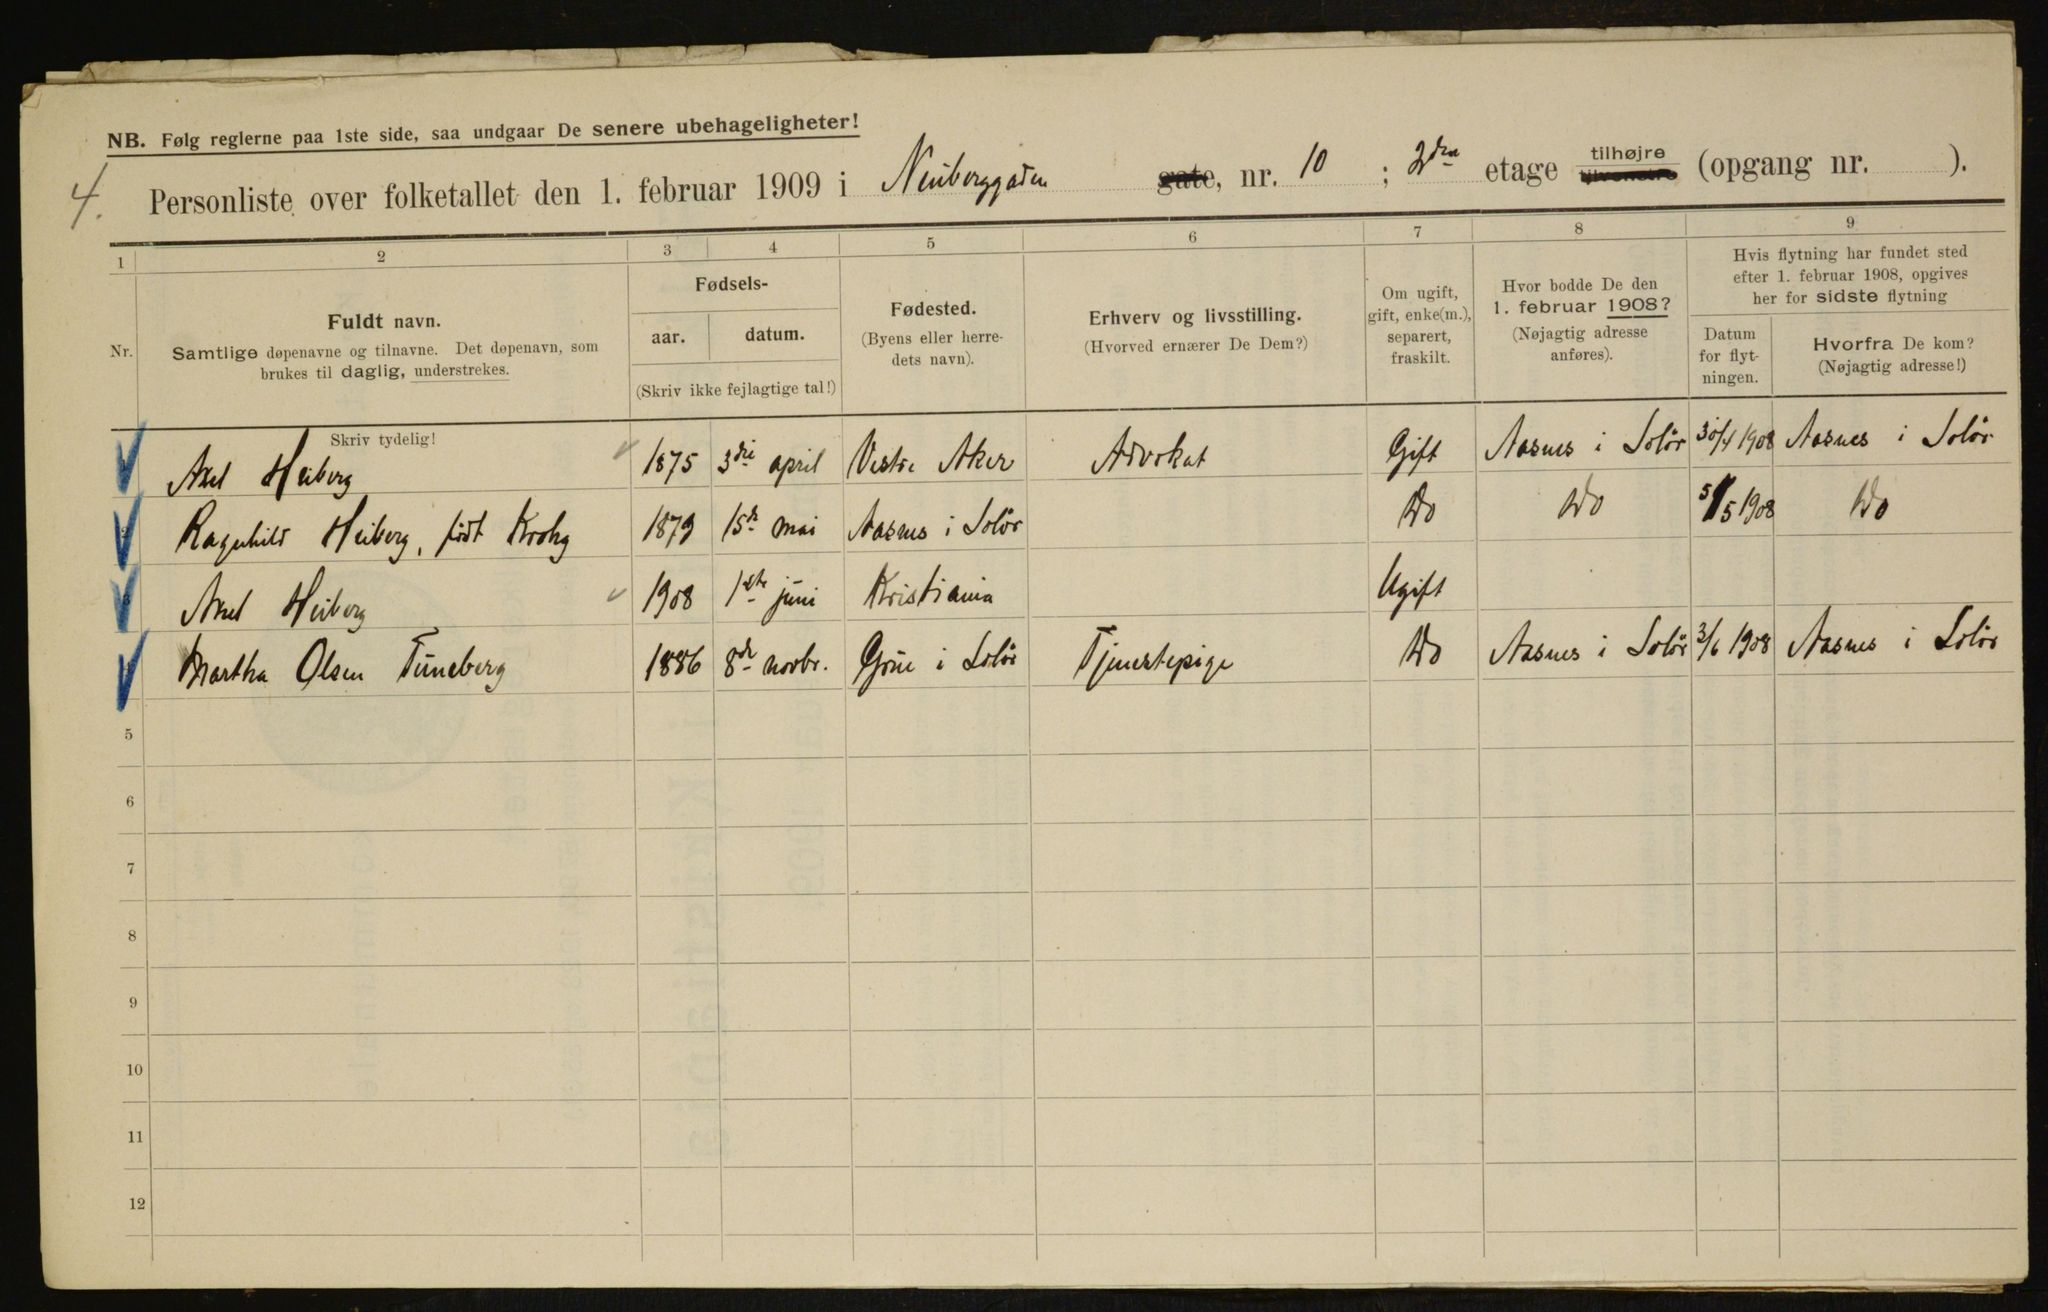 NB. Følg reglerne paa 1ste side, saa undgaar De senere ubehageligheter!
4. Personliste over folketallet den 1. februar 1909 i Neuberggaden gate, nr. 10 ; 2den etage tilhøjre tilvenstre (opgang nr. ).
1 2 3 4 5 6 7 8 9
Nr.
Fuldt navn.
Samtlige døpenavne og tilnavne. Det døpenavn, som
brukes til daglig, understrekes.
Skriv tydelig!
Fødsels-
aar. datum.
(Skriv ikke fejlagtige tal!)
Fødested.
(Byens eller herre-
dets navn).
Erhverv og livsstilling.
(Hvorved ernærer De Dem?)
Om ugift,
gift, enke(m.),
separert,
fraskilt.
Hvor bodde De den
1. februar 1908?
(Nøjagtig adresse
anføres).
Hvis flytning har fundet sted
efter 1. februar 1908, opgives
her for sidste flytning
Datum
for flyt-
ningen.
Hvorfra De kom?
(Nøjagtig adresse!)
Axel Heiberg 1875 3die april Vestre Aker Advokat Gift Aasnes i Solør 30/4 1908 Aasnes i Solør
2 Ragnhild Heiberg, født Krohg 1879 15de mai Aasnes i Solør Do Do 5/5 1908 Do
3 Axel Heiberg 1908 1ste juni Kristiania Ugift
Martha Olsen Tuneberg 1886 8de novbr. Grue i Solør Tjenestepige Do Aasnes i Solør 3/6 1908 Aasnes i Solør
5
6
7
8
9
10
11
12